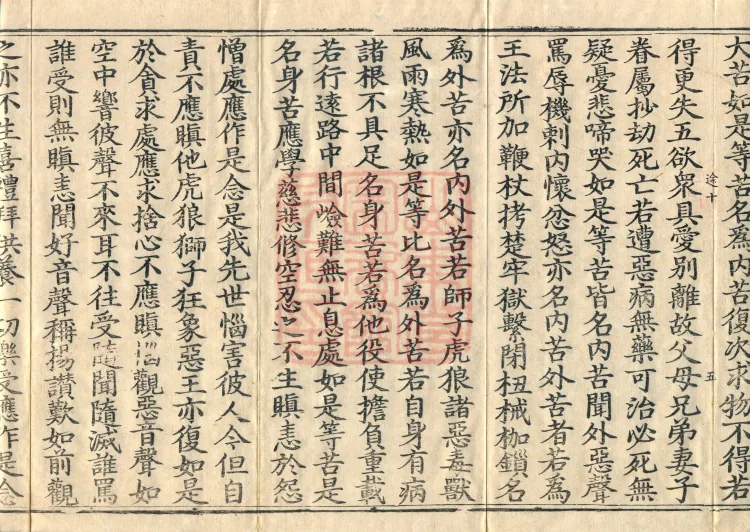 大苦如是等苦名為内苦復次求物不得若
得更失五欲衆具愛別離故父母兄弟妻子
眷屬抄劫死亡若遭惡病無藥可治必死無
疑憂悲啼哭如是等苦皆名内苦聞外惡聲
罵辱機刺内懷忿怒亦名内苦外苦者若為
王法所加鞭杖拷楚牢獄繫閉杻械枷鎖名
為外苦亦名内外苦若師子虎狼諸惡毒獸
風雨寒熱如是等比名為外苦若自身有病
諸根不具足名身苦若為他役使擔負重載
若行遠路中間嶮難無止息處如是等苦是
名身苦應學慈悲修空忍之不生瞋恚於怨
憎處應作是念是我先世惱害彼人今但自
責不應瞋他虎狼獅子狂象惡王亦復如是
於貪求處應求捨心不應瞋惱觀惡音聲如
空中響彼聲不來耳不往受隨聞隨滅誰罵
誰受則無瞋恚聞好音聲稱揚讃歎如前觀
之亦不生喜禮拜供養一切樂受應作是念
途十
五